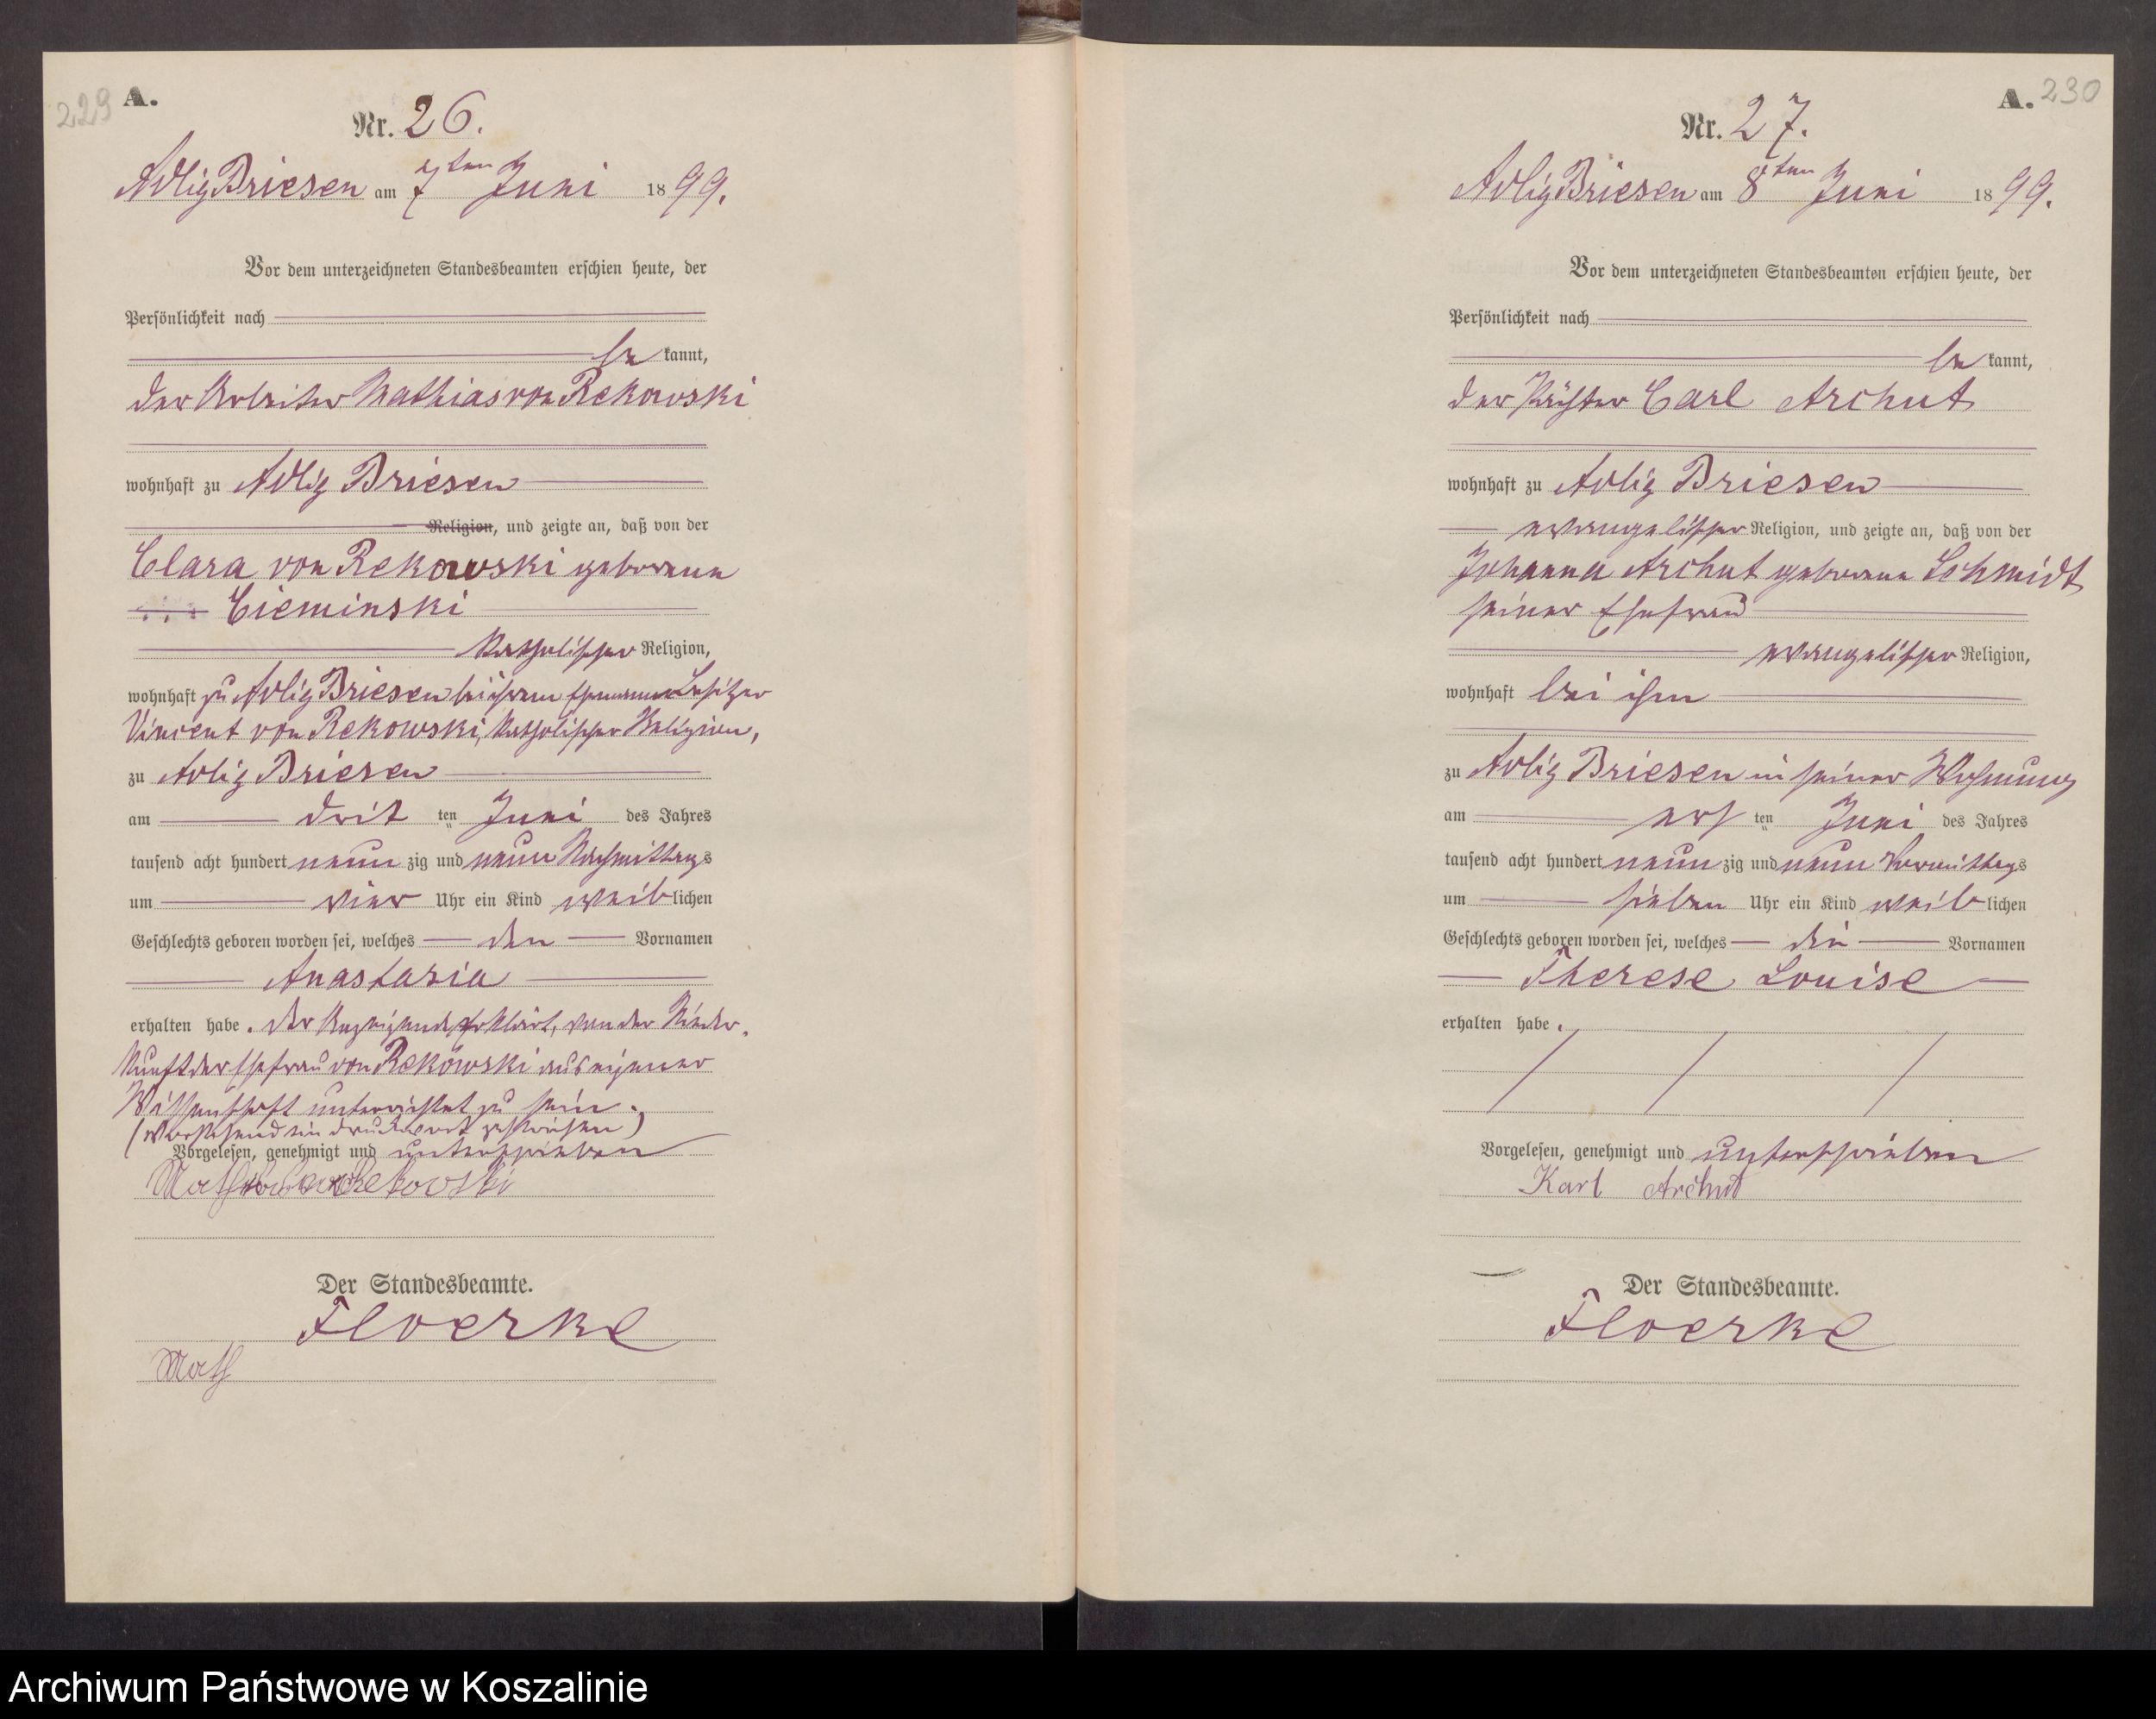 229
A.
Nr. 26.
Adlig Briesen am 7ten Juni 1899.
Vor dem unterzeichneten Standesbeamten erschien heute, der
Persönlichkeit nach
be kannt,
der Arbeiter Mathias von Rekowski
wohnhaft zu Adlig Briesen
Religion, und zeigte an, daß von der
Clara von Rekowski geborenen
Cieminski
katholischer Religion,
wohnhaft zu Adlig Briesen bei ihrem Ehemanne Besitzer
Vincent von Rekowski, katholischer Religion,
zu Adlig Briesen
am drit ten Juni des Jahres
tausend acht hundert neun zig und neun Nachmittags
um vier Uhr ein Kind weiblichen
Geschlechts geboren worden sei, welches den Vornamen
Anastasia
erhalten habe. Der Anzeigende erklärt, von der Nieder-
kunft der Ehefrau von Rekowski aus eigener
Wissenschaft unterrichtet zu sein.
(Vorstehend ein Druckwort gestrichen)
Vorgelesen, genehmigt und unterschrieben
Rekovski
Der Standesbeamte.
Floerke
Math
A. 230
Nr. 27.
Adlig Briesen am 8ten Juni 1899.
Vor dem unterzeichneten Standesbeamten erschien heute, der
Persönlichkeit nach
be kannt,
der Küster Carl Archut
wohnhaft zu Adlig Briesen
evangelischer Religion, und zeigte an, daß von der
Johanna Archut geborenen Schmidt
seiner Ehefrau
evangelischer Religion,
wohnhaft bei ihm
zu Adlig Briesen in seiner Wohnung
am ers ten Juni des Jahres
tausend acht hundert neun zig und neun Vormittags
um sieben Uhr ein Kind weiblichen
Geschlechts geboren worden sei, welches die Vornamen
Therese Louise
erhalten habe.
Vorgelesen, genehmigt und unterschrieben
Karl Archut
Der Standesbeamte.
Floerke
Archiwum Państwowe w Koszalinie